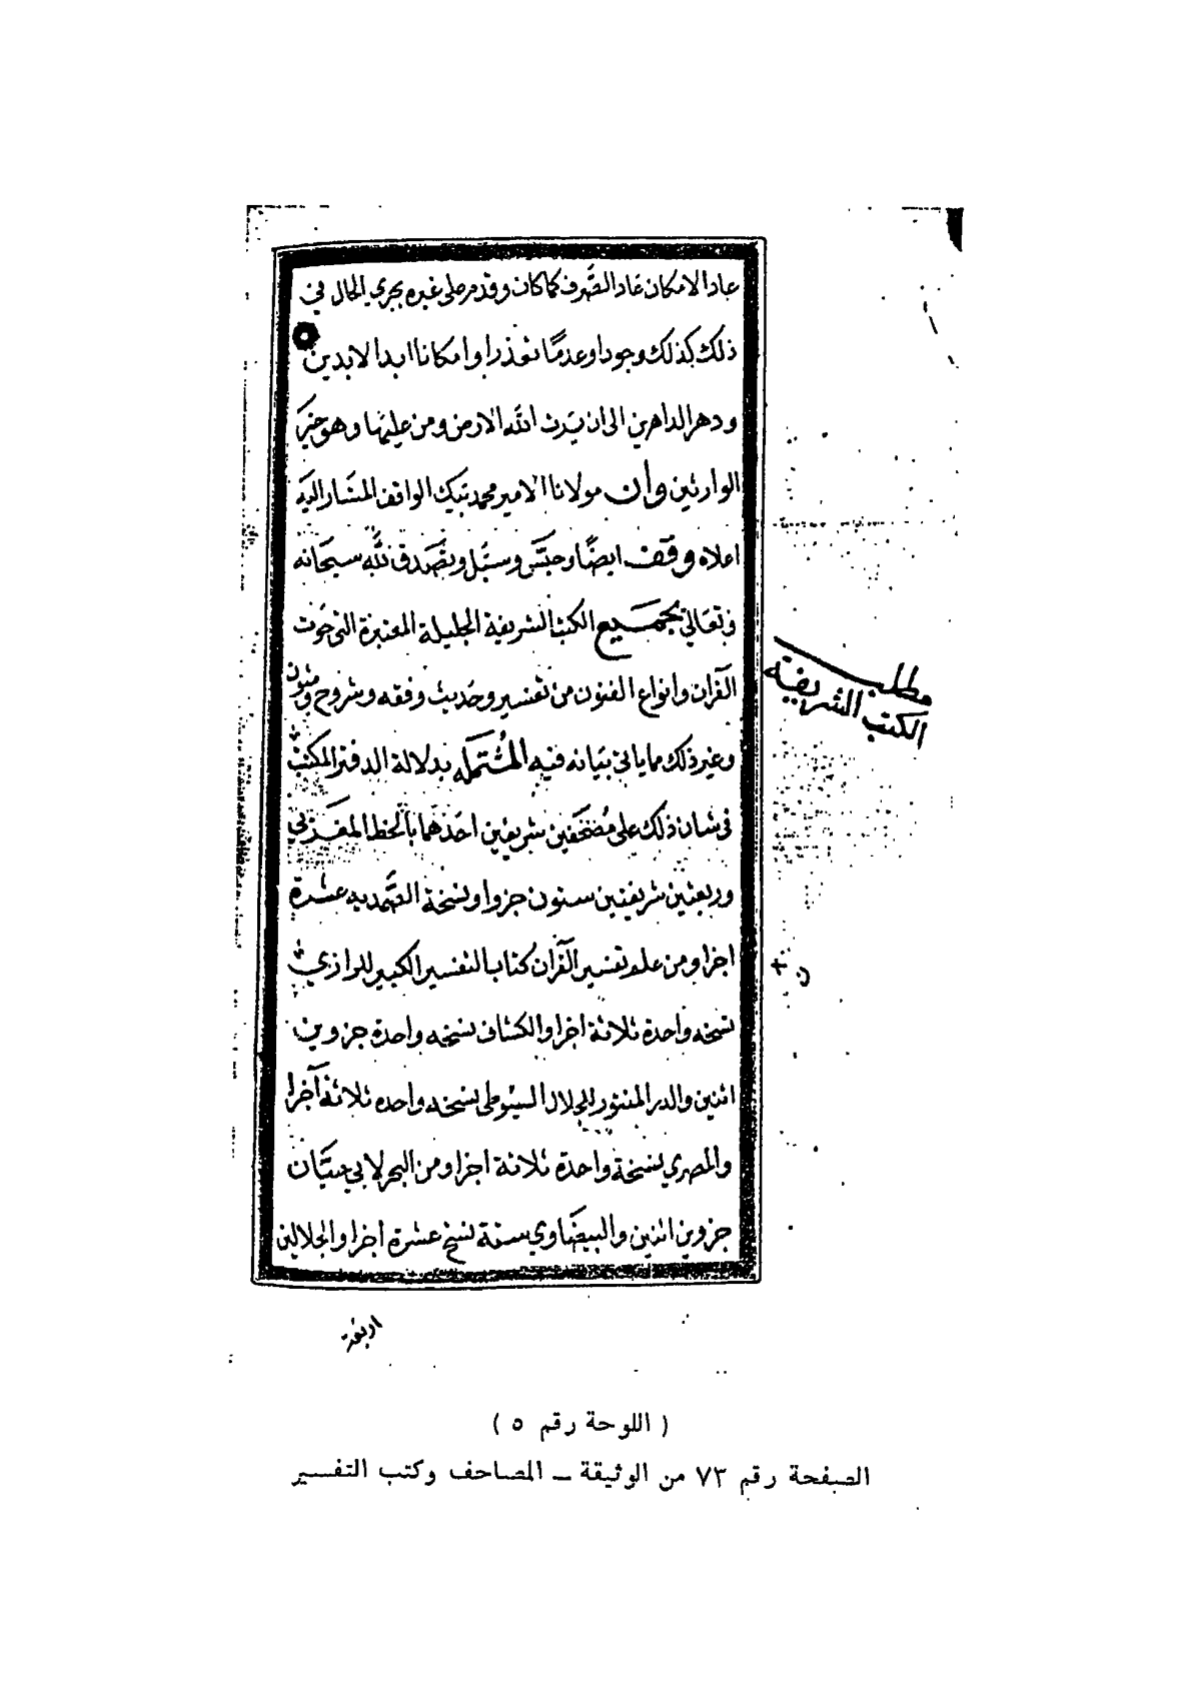 عاد الامكان عاد الصرف كما كان وقدم على غيره يجري الحال في
ذلك كذلك وجودا وعدما تعذرا وامكانا ابد الابدين
ودهر الداهرين الى ان يرث الله الارض ومن عليها وهو خير
الوارثين وان مولانا الامير محمد بيك الواقف المشار اليه
اعلاه وقف ايضا وحبس وسبل وتصدق لله سبحانه
وتعالى بجميع الكتب الشريفة الجليلة المعتبرة التي حوت
القران وانواع الفنون من تفسير وحديث وفقه وشروح ومتون
وغير ذلك مما ياتي بيانه فيه المشتمله بدلالة الدفتر المكتتب
في شان ذلك على مصحفين شريفين احدهما بالخط المغربي
وربعتين شريفتين ستون جزوا ونسخة الصمديه عشرة
اجزا ومن علم تفسير القران كتاب التفسير الكبير للرازي
نسخه واحدة ثلاثة اجزا والكشاف نسخه واحدة جزوين
اثنين والدر المنثور للجلال السيوطي نسخه واحده ثلاثة اجزا
والمصري نسخة واحدة ثلاثة اجزا ومن البحر لابي حيان
جزوين اثنين والبيضاوي ستة نسخ عشرة اجزا والجلالين
اربعة
مطلب
الكتب الشريفة
( اللوحة رقم ٥ )
الصفحة رقم ٧٣ من الوثيقة – المصاحف وكتب التفسير